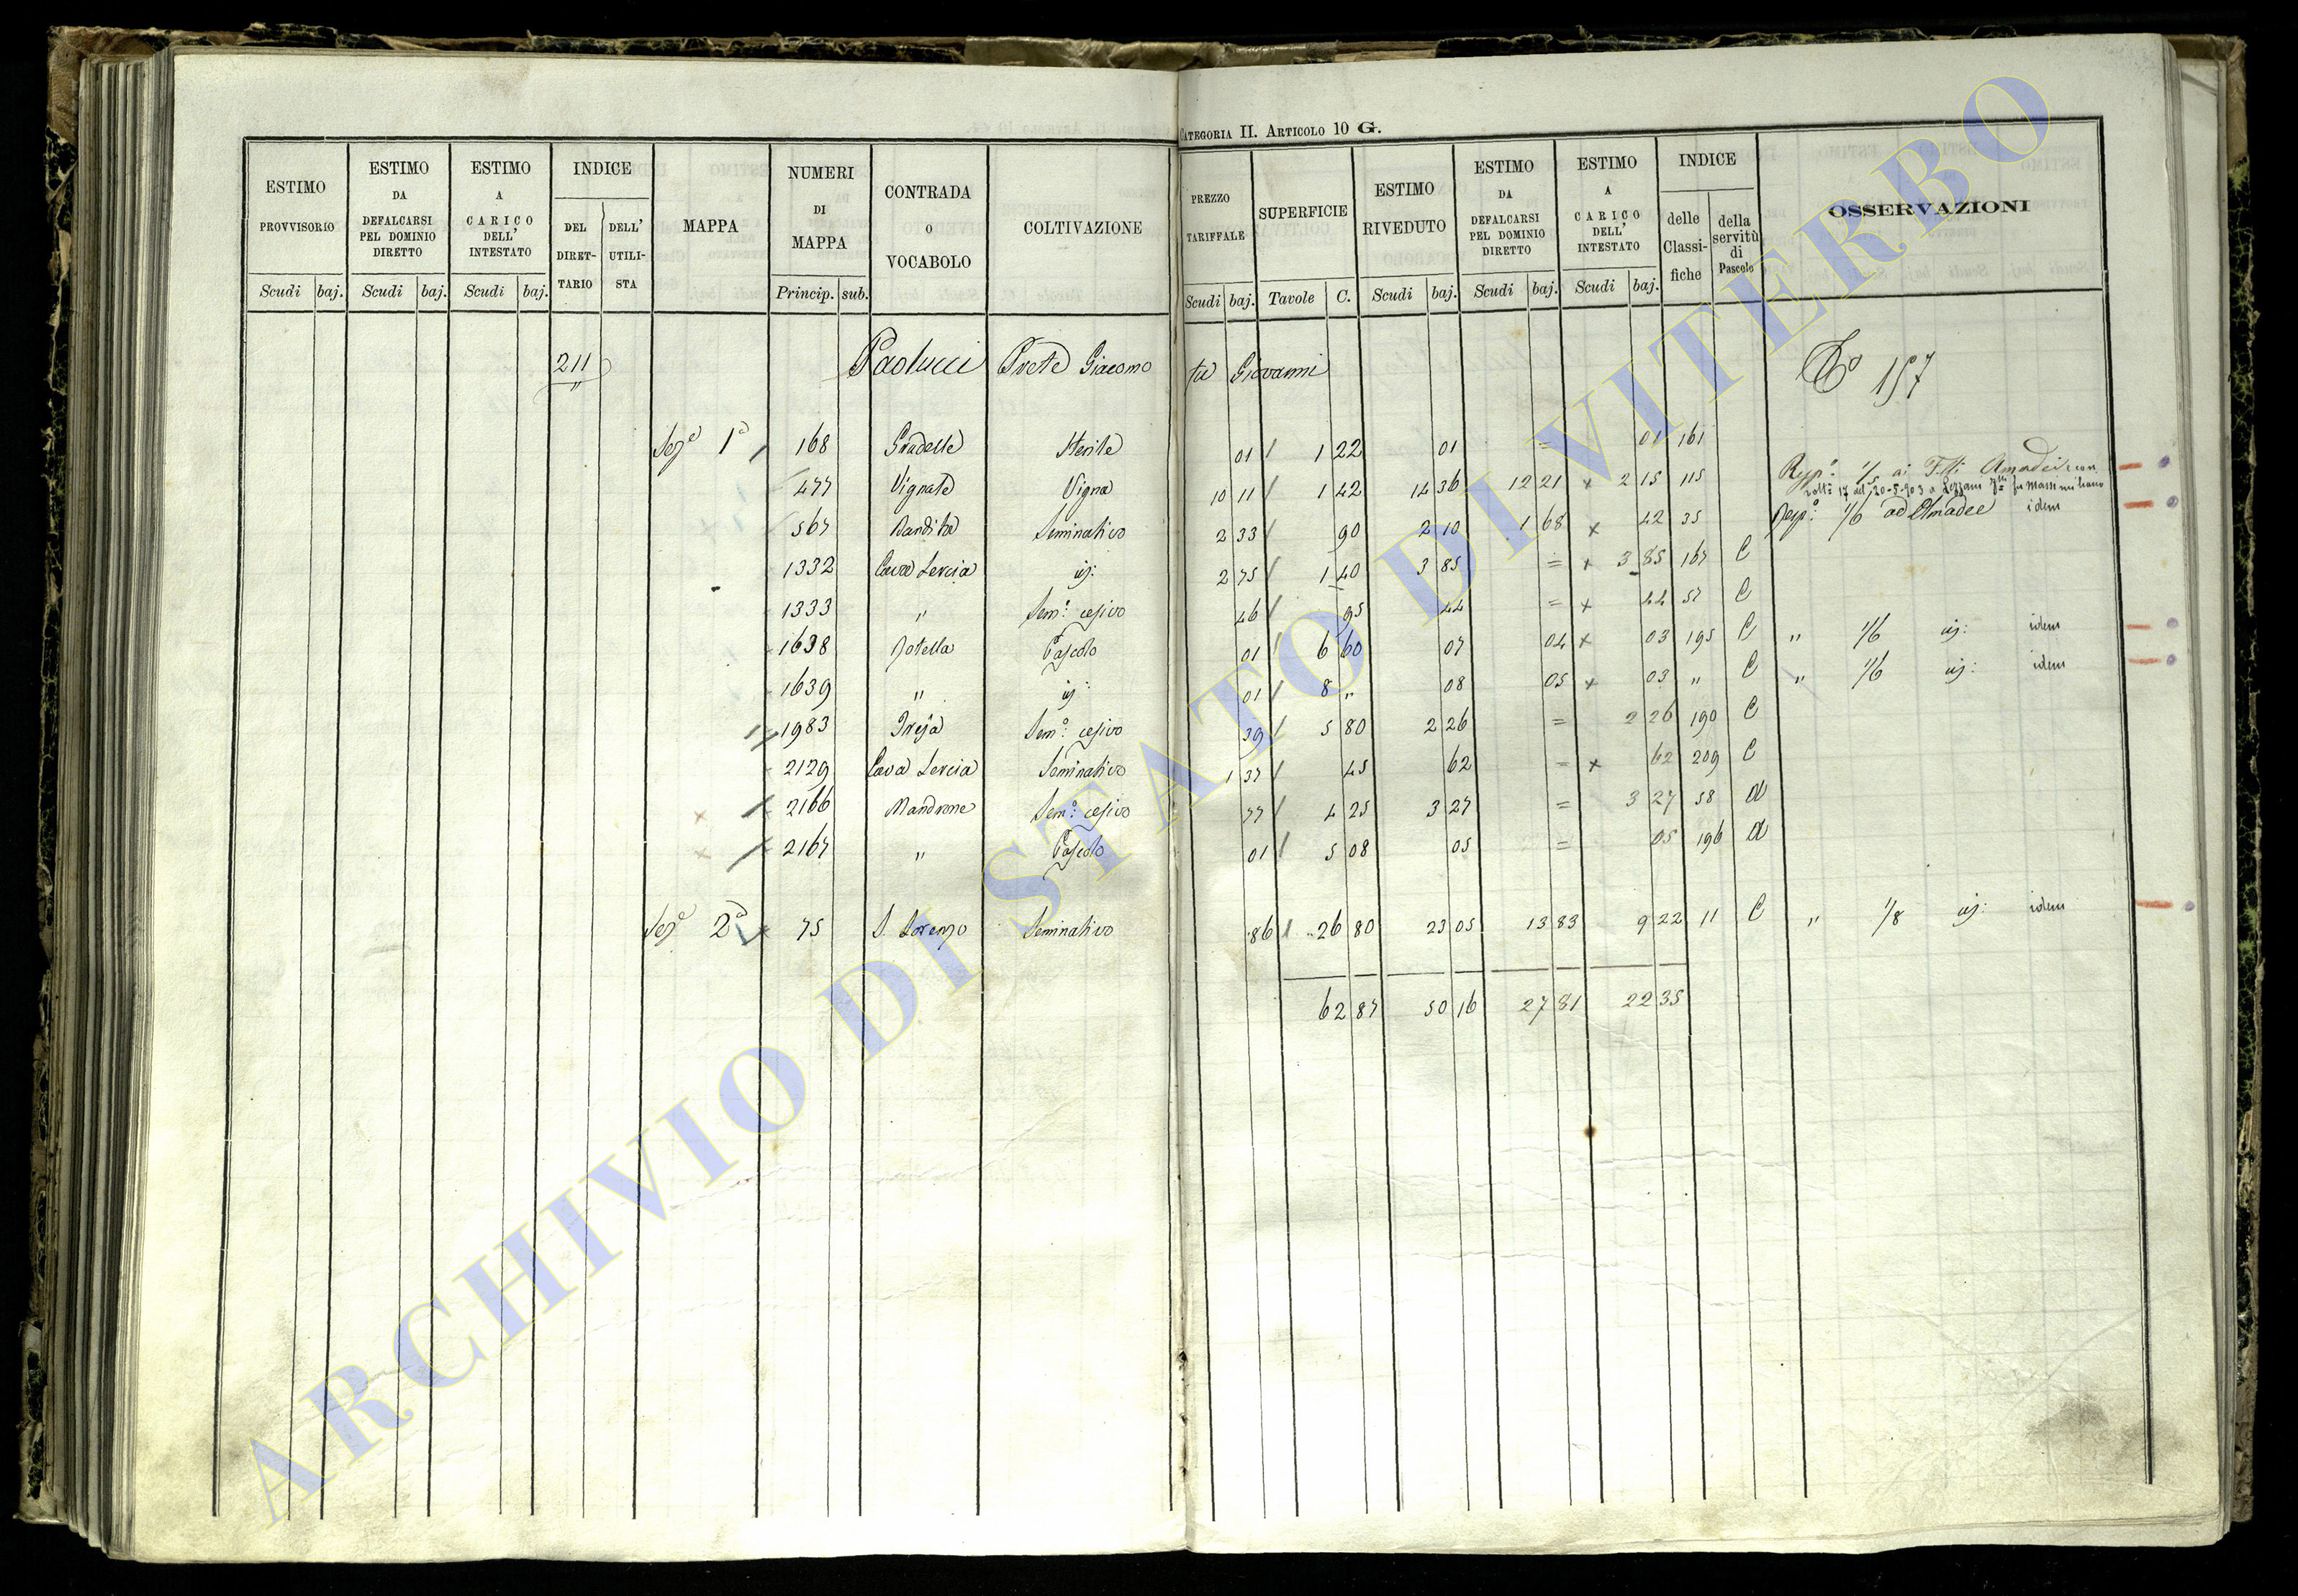 CATEGORIA II. ARTICOLO 10 G.
ESTIMO PROVVISORIO Scudi baj.
ESTIMO DA DEFALCARSI PEL DOMINIO DIRETTO Scudi baj.
ESTIMO A CARICO DELL' INTESTATO Scudi baj.
INDICE DEL DIRET-TARIO DELL' UTILI-STA
MAPPA
NUMERI DI MAPPA Princip. sub.
CONTRADA O VOCABOLO
COLTIVAZIONE
PREZZO TARIFFALE Scudi baj.
SUPERFICIE Tavole C.
ESTIMO RIVEDUTO Scudi baj.
ESTIMO DA DEFALCARSI PEL DOMINIO DIRETTO Scudi baj.
ESTIMO A CARICO DELL' INTESTATO Scudi baj.
INDICE delle Classi-fiche della servitù di Pascolo
OSSERVAZIONI
211 Paolucci Prete Giacomo fu Giovanni 157
Sez.e 1a 168 Gradelle Sterile 01 1 22 01 = 01 161
477 Vignale Vigna 10 11 1 42 14 36 12 21 x 2 15 115 Risp. 1/5 ai F.lli Amadei
volt. 17 del 20-5-903 a fu Massimiliano
567 Bandita Seminativo 2 33 90 2 10 1 68 x 42 35 Risp. 1/6 ad Amadei idem
1332 Cava Lercia id: 2 75 1 40 3 85 = x 3 85 167 C
1333 " Sem.o cesivo 46 95 44 = x 44 57 C
1638 Rotella Pascolo 01 6 60 07 04 x 03 195 C " 1/6 id: idem
1639 " id: 01 8 " 08 05 x 03 " C " 1/6 id: idem
1983 Sem.o cesivo 39 5 80 2 26 = 2 26 190 C
2129 Cava Lercia Seminativo 1 37 45 62 = x 62 209 C
2166 Mandrone Sem.o cesivo 77 4 25 3 27 = 3 27 58 A
2167 " Pascolo 01 5 08 05 = 05 196 A
Sez.e 2a 75 S. Lorenzo Seminativo 86 26 80 23 05 13 83 9 22 11 C " 1/8 id: idem
62 87 50 16 27 81 22 35
ARCHIVIO DI STATO DI VITERBO